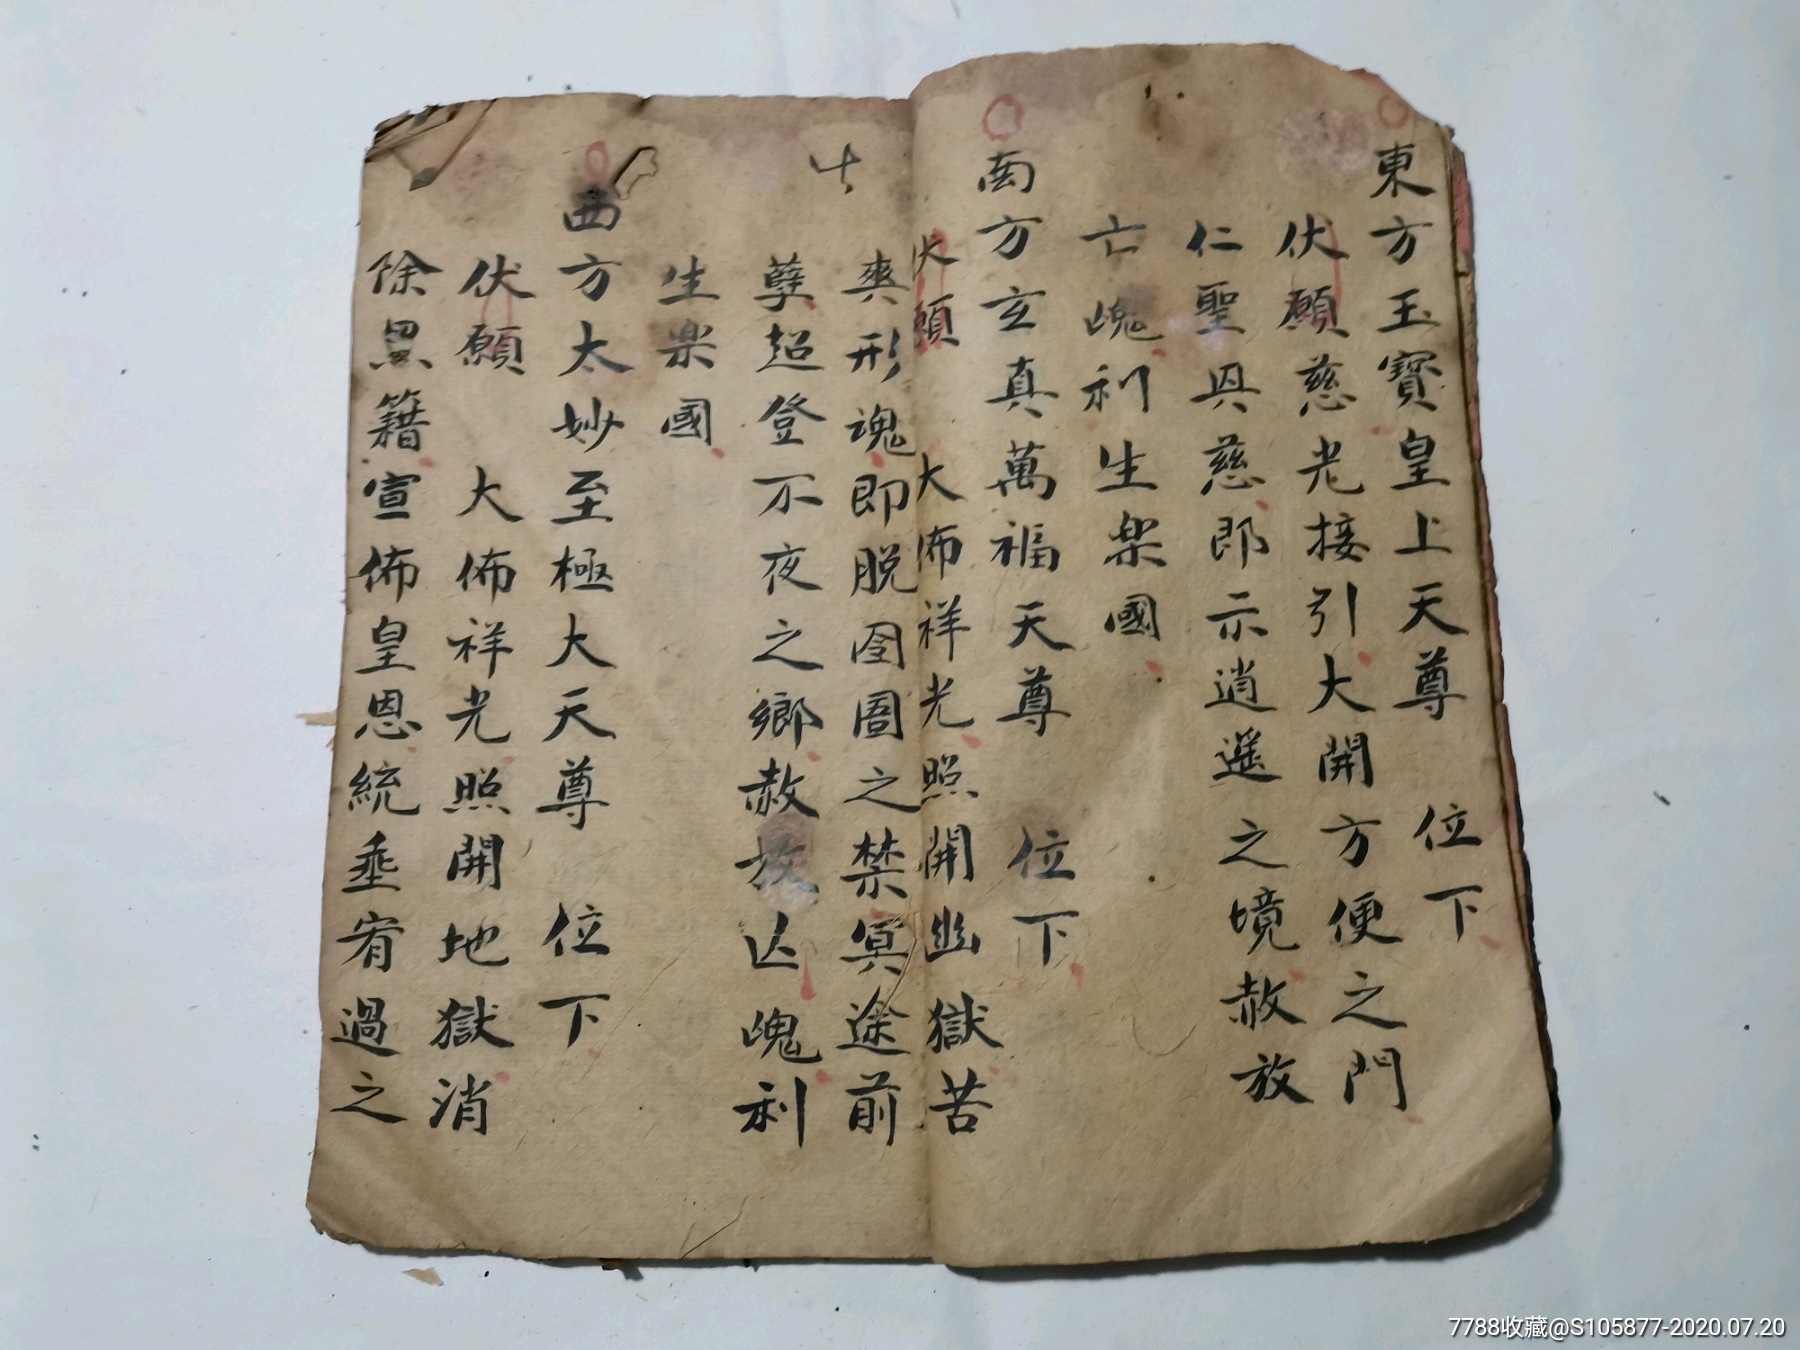 東方玉寶皇上天尊 位下
伏願慈光接引大開方便之門
仁聖具慈郎示逍遥之境赦放
亡魂利生楽國
南方玄真萬福天尊 位下
伏願 大佈祥光照開幽獄苦
爽形魂即脱囹圄之禁冥途前
孽超登不夜之鄉赦放亾魂利
生楽國
西方太妙至極大天尊 位下
伏願 大佈祥光照開地獄消
除黑籍宣佈皇恩統垂宥過之
7788收藏@S105877-2020.07.20